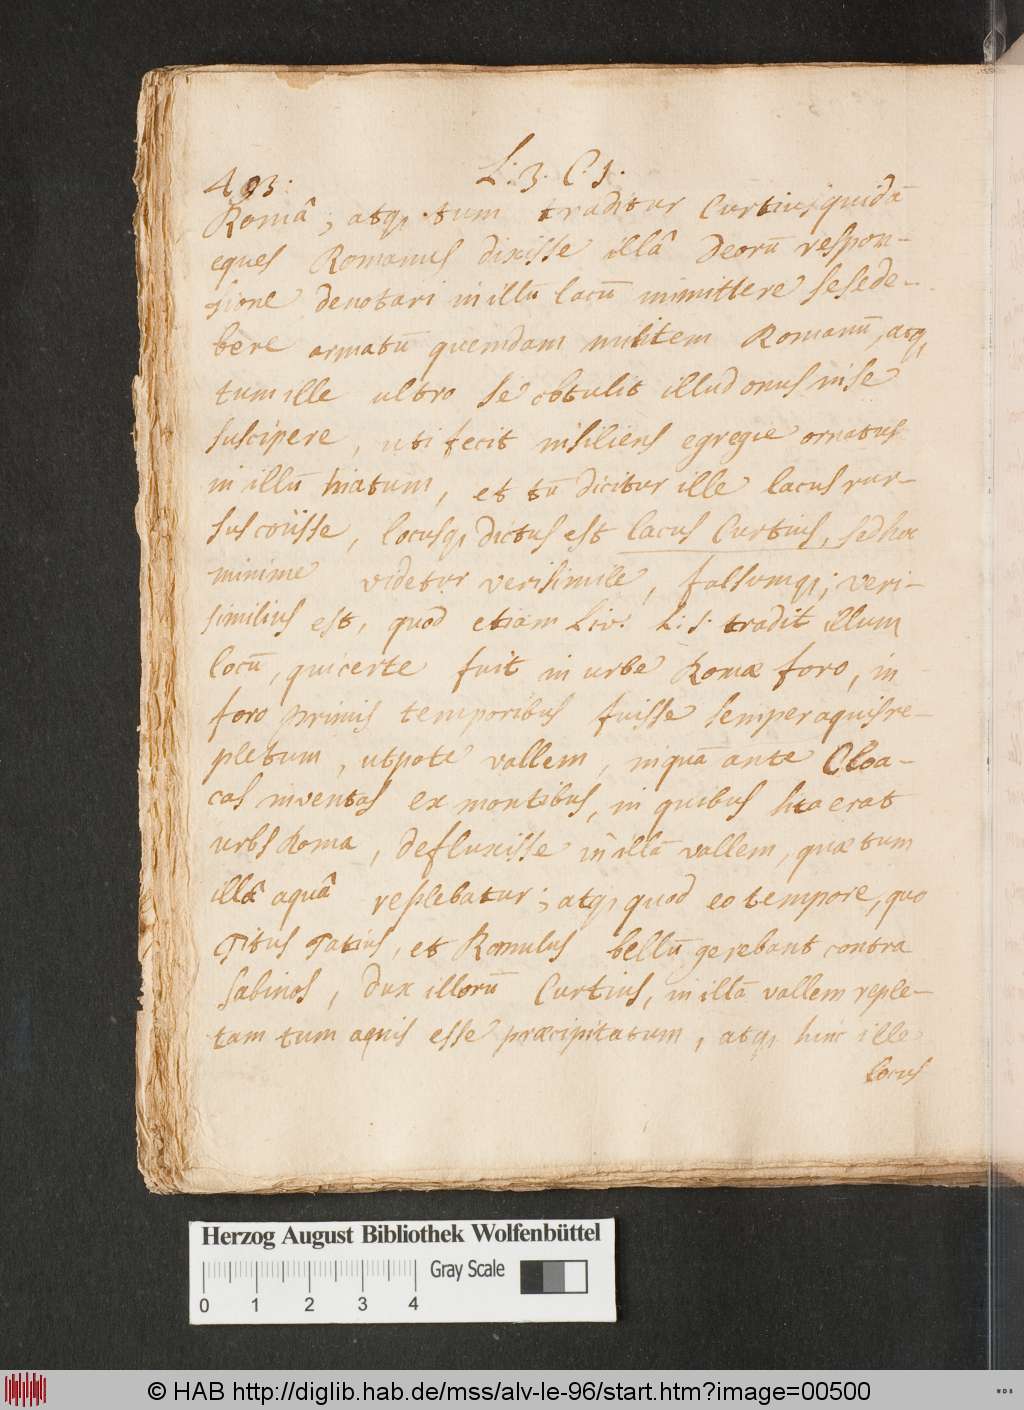 493:
L: 3. C. 1.
Româ; atq, tum traditur Curtius quidā
eques Romanus dixisse illâ Deorū respon-
sione denotari in illū lacū immittere sese de-
bere armatū quemdam militem Romanū, atq,
tum ille ultro se obtulit illud onus in se
suscipere, uti fecit insiliens egregie ornatus
in illū hiatum, et tū dicitur ille lacus rur-
sus coiisse, locusq, dictus est lacus Curtius, sed hoc
minime videtur verisimile, falsumq,; veri-
similius est, quod etiam Liv: L: 1. tradit illum
locū, qui certe fuit in urbe Romæ foro, in
foro primis temporibus fuisse semper aquis re-
pletum, utpote vallem, in quā ante Cloa-
cas inventas ex montibus, in quibus sita erat
urbs Roma, defluxisse in illā vallem, quæ tum
illâ aquâ replebatur; atq, quod eo tempore, quo
Titus Tatius, et Romulus bellū gerebant contra
Sabinos, dux illorū Curtius, in illā vallem reple-
tam tum aquis esse præcipitatum, atq, hinc ille
locus
Herzog August Bibliothek Wolfenbüttel
Gray Scale
0 1 2 3 4
© HAB http://diglib.hab.de/mss/alv-le-96/start.htm?image=00500